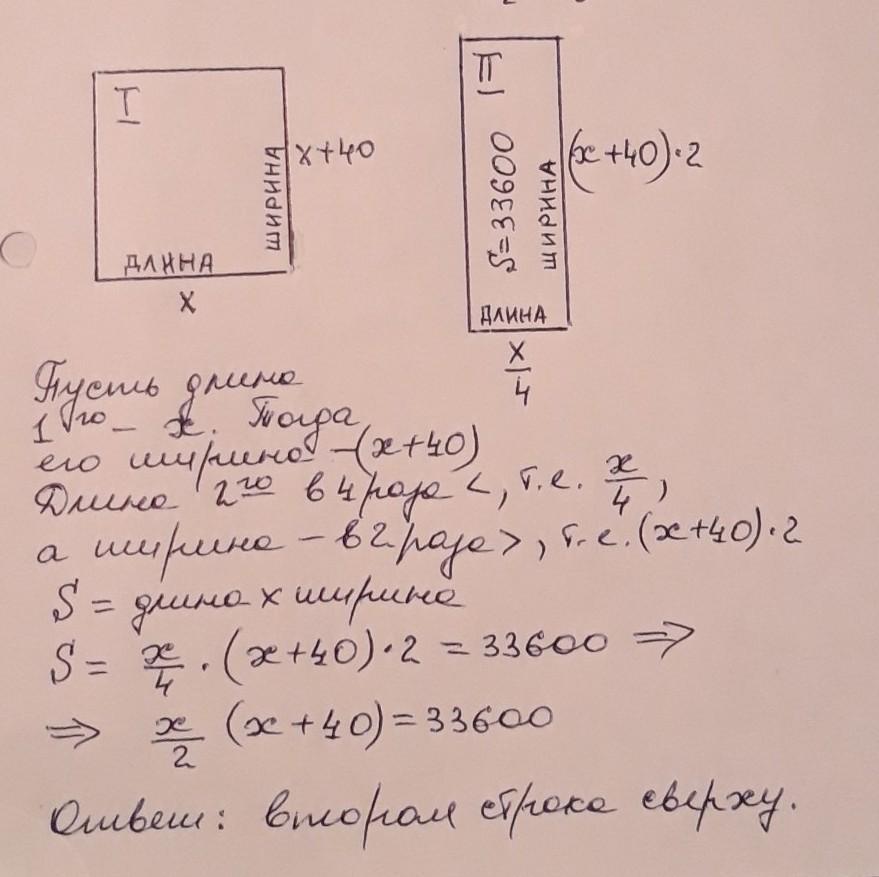 I
ШИРИНА
x+40
ДЛИНА
x
II
S=33600
ШИРИНА
(x+40)·2
ДЛИНА
x/4
Пусть длина
1го – x. Тогда
его ширина –(x+40)
Длина 2го в 4 раза <, т.е. x/4,
а ширина – в 2 раза >, т.е. (x+40)·2
S = длина x ширина
S = x/4 · (x+40)·2 = 33600 ⇒
⇒ x/2 (x+40) = 33600
Ответ: вторая строка сверху.